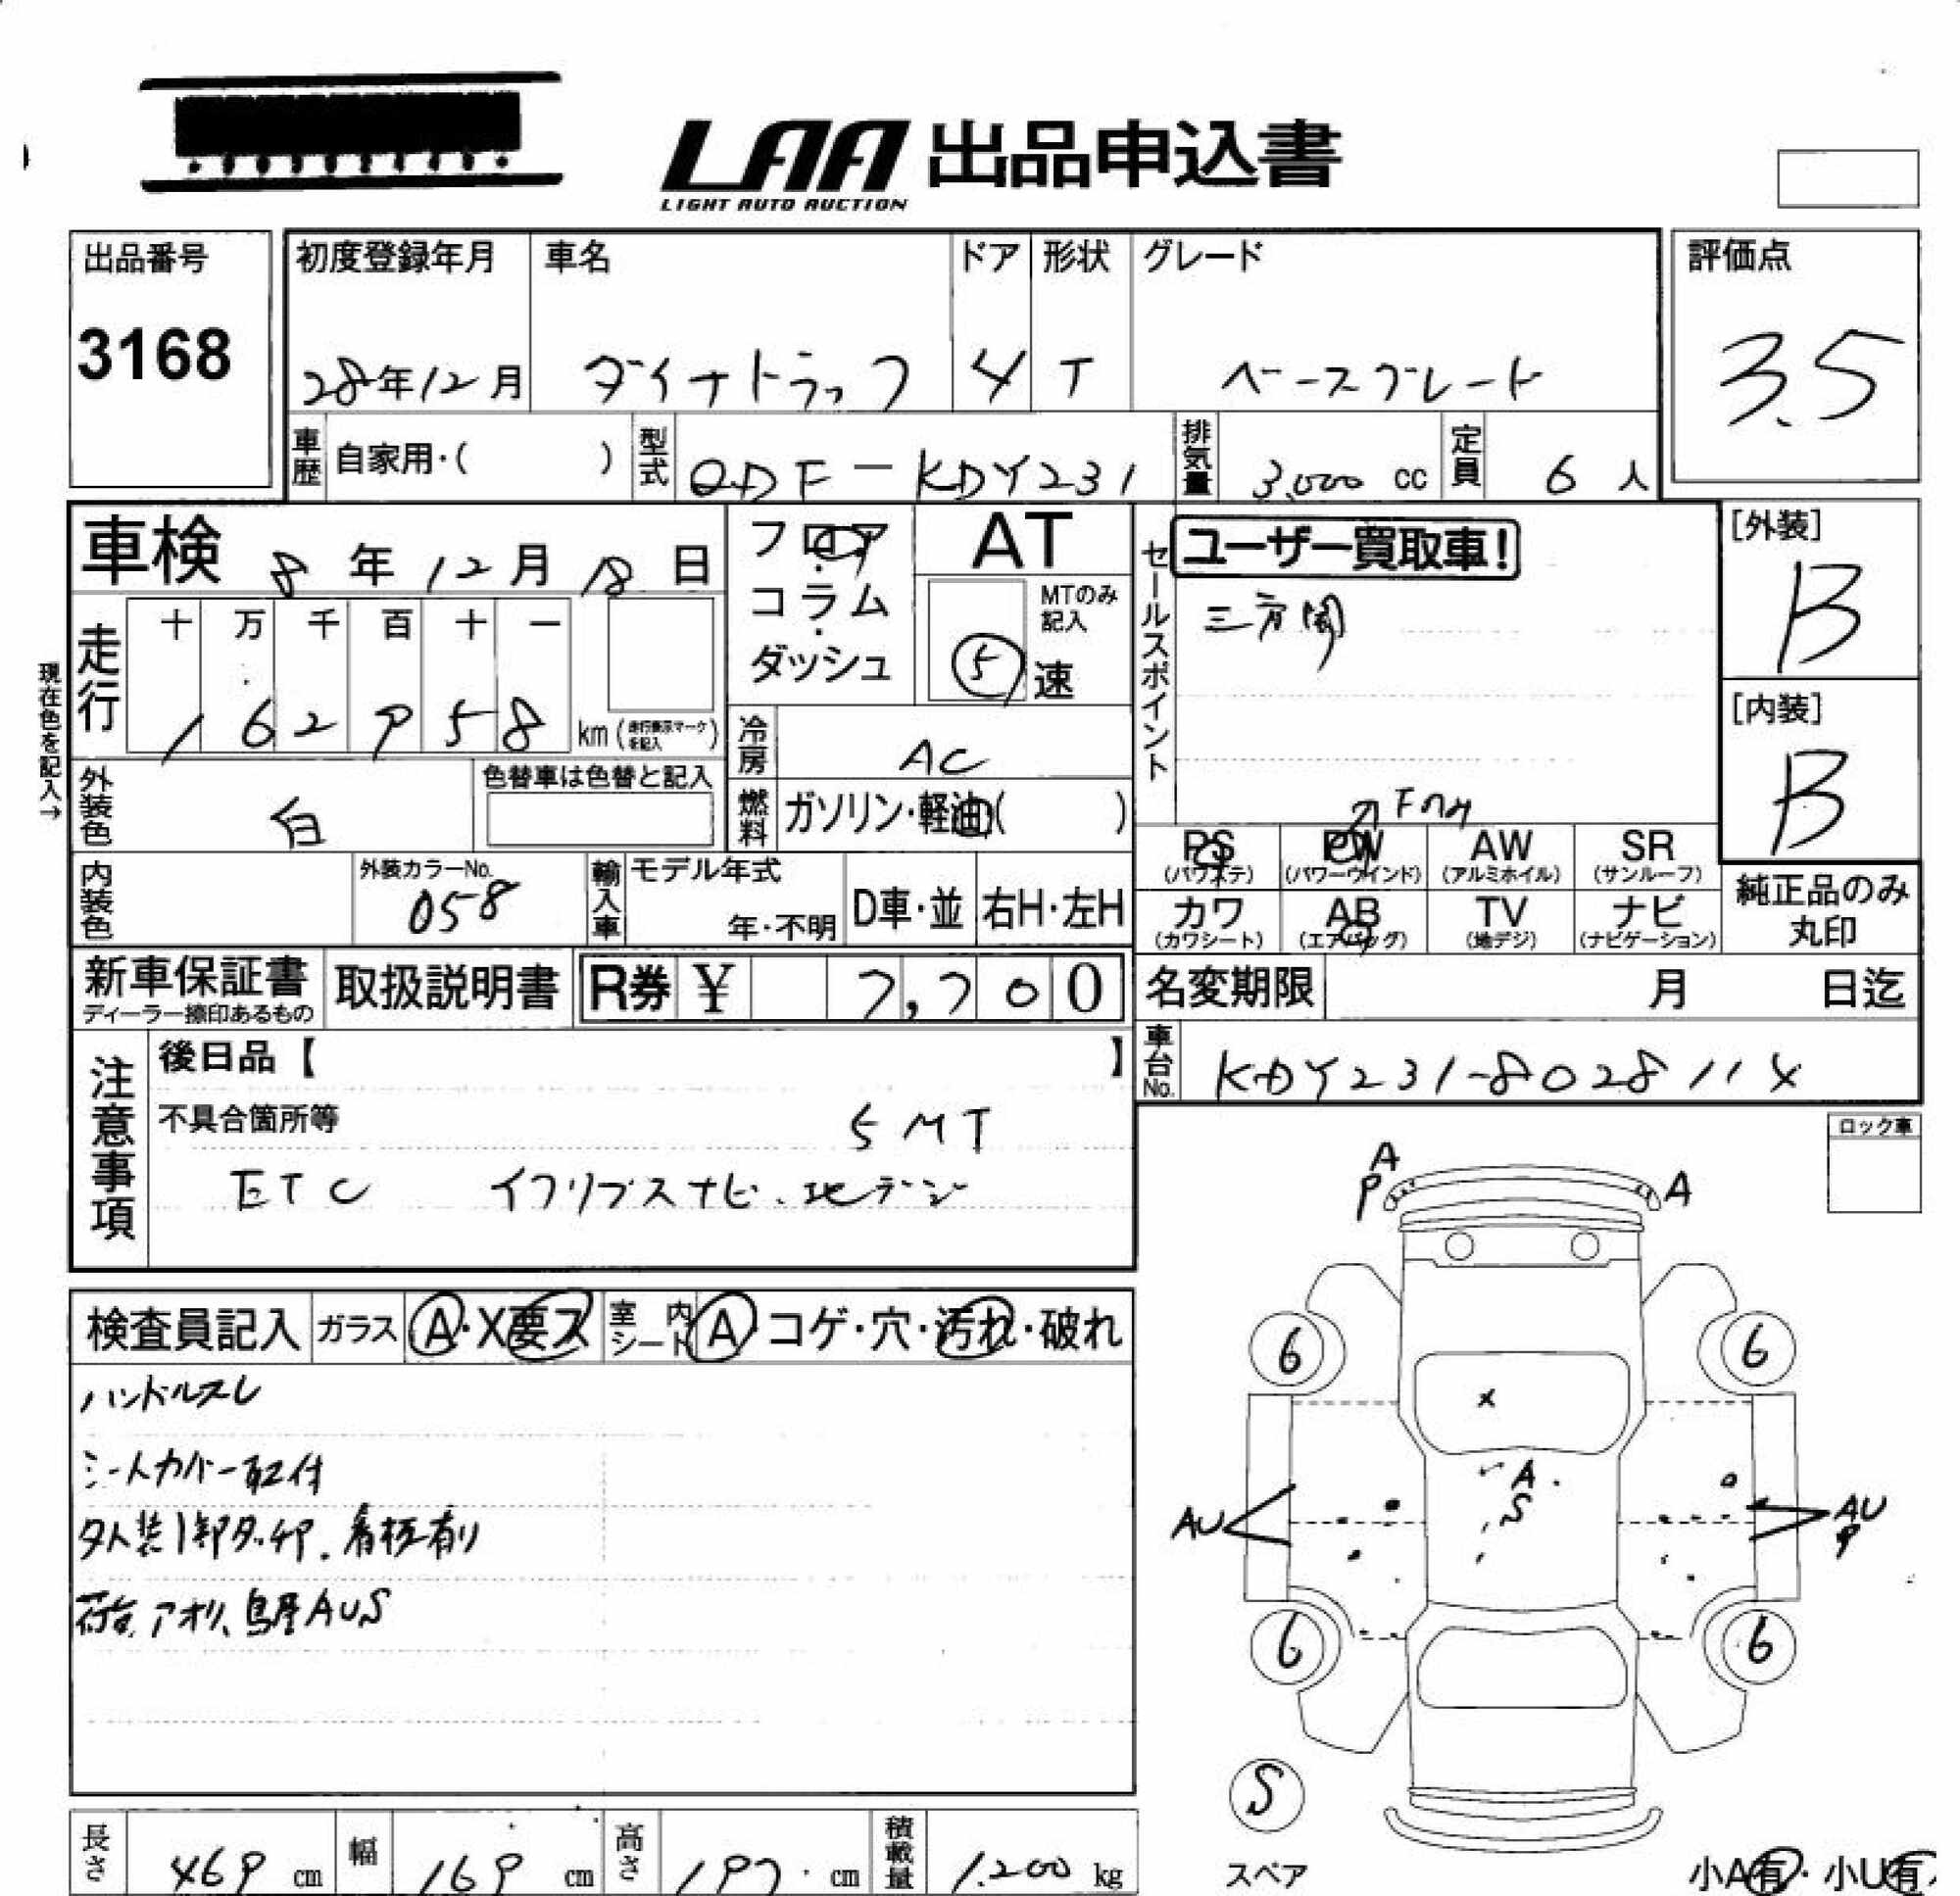 LAA 出品申込書
LIGHT AUTO AUCTION
出品番号
3168
初度登録年月
28年12月
車名
ダイナトラック
ドア
4
形状
T
グレード
ベースグレード
評価点
3.5
車歴 自家用・( )
型式 QDF-KDY231
排気量 3,000 cc
定員 6 人
車検 8年12月18日
フロア・コラム・ダッシュ
AT
MTのみ記入
5 速
セールスポイント
ユーザー買取車!
三方開
[外装]
B
[内装]
B
現在色を記入→
走行
十 万 千 百 十 一
1 6 2 9 5 8 km(走行表示マークを記入)
冷房 AC
外装色 白
色替車は色替と記入
燃料 ガソリン・軽油( )
Fのみ
PS (パワステ)
PW (パワーウインド)
AW (アルミホイル)
SR (サンルーフ)
カワ (カワシート)
AB (エアバッグ)
TV (地デジ)
ナビ (ナビゲーション)
純正品のみ丸印
内装色
外装カラーNo.
058
輸入車
モデル年式
年・不明
D車・並
右H・左H
新車保証書
ディーラー捺印あるもの
取扱説明書
R券 ¥ 7,700
名変期限 月 日迄
車台No. KDY231-802811X
注意事項
後日品【 】
不具合箇所等
5MT
ETC イクリプスナビ、地デジ
ロック車
検査員記入
ガラス A・X要ス
室内シート A コゲ・穴・汚れ・破れ
ハンドルスレ
シートカバー取付
外装1部タッチ中、看板有り
荷台、アオリ、鳥居AUS
A
P
A
6
6
X
A
S
AU
AU
P
6
6
S
スペア
小A有・小U有
長さ 469 cm
幅 169 cm
高さ 197 cm
積載量 1,200 kg